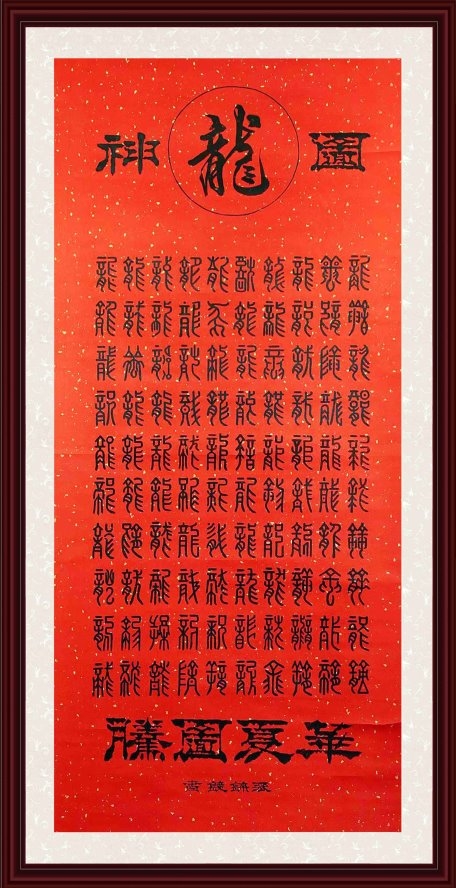 神龍圖
龍龍龍龍龍龍龍龍龍龍
龍龍龍龍龍龍龍龍龍龍
龍龍龍龍龍龍龍龍龍龍
龍龍龍龍龍龍龍龍龍龍
龍龍龍龍龍龍龍龍龍龍
龍龍龍龍龍龍龍龍龍龍
龍龍龍龍龍龍龍龍龍龍
龍龍龍龍龍龍龍龍龍龍
龍龍龍龍龍龍龍龍龍龍
龍龍龍龍龍龍龍龍龍龍
華夏圖騰